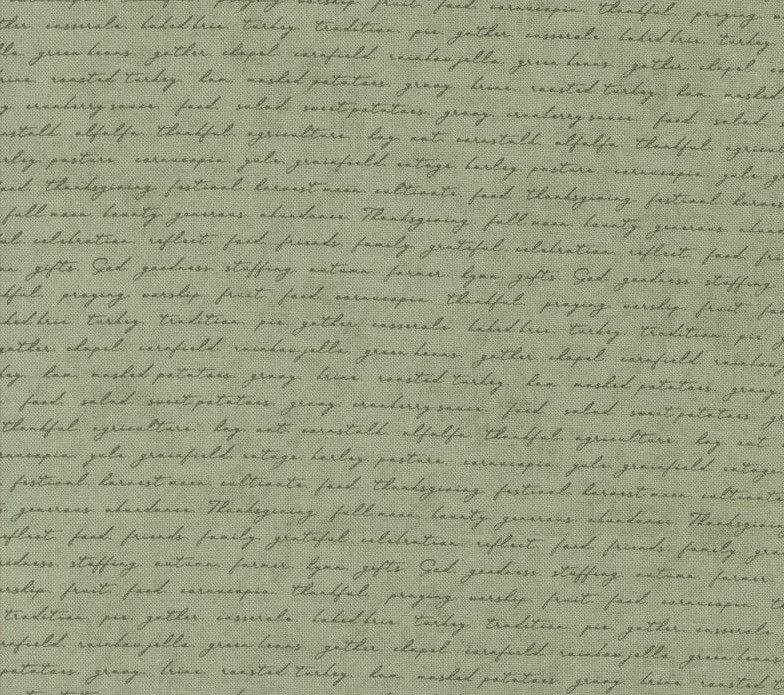 worship. fruit. food. cornucopia. thankful. praying.
casserole. baked brie. turkey. tradition. pie. gather. casserole. baked brie. turkey.
green beans. gather. chapel. cornfield. rainbow jello. green beans. gather. chapel.
brine. roasted turkey. ham. mashed potatoes. gravy. brine. roasted turkey. ham. mashed
cranberry sauce. food. salad. sweet potatoes. gravy. cranberry sauce. food. salad.
alfalfa. thankful. agriculture. hay. oat. cornstalk. alfalfa. thankful.
pasture. cornucopia. yule. grainfield. barley. pasture. cornucopia. yule.
food. thanksgiving. festival. harvest moon. cultivate. food. thanksgiving. festival.
full moon. bounty. generous. abundance. Thanksgiving. full moon. bounty. generous.
celebration. reflect. food. friends. family. grateful. celebration. reflect. food.
gifts. God. goodness. stuffing. autumn. farmer. hymn. gifts. God. goodness. stuffing.
praying. worship. fruit. food. cornucopia. thankful. praying. worship. fruit.
turkey. tradition. pie. gather. casserole. baked brie. turkey. tradition. pie.
gather. chapel. cornfield. rainbow jello. green beans. gather. chapel. cornfield. rainbow
ham. mashed potatoes. gravy. brine. roasted turkey. ham. mashed potatoes. gravy.
food. salad. sweet potatoes. gravy. cranberry sauce. food. salad. sweet potatoes.
thankful. agriculture. hay. oat. cornstalk. alfalfa. thankful. agriculture. hay. oat.
yule. grainfield. barley. pasture. cornucopia. yule. grainfield.
festival. harvest moon. cultivate. food. thanksgiving. festival. harvest moon.
generous. abundance. Thanksgiving. full moon. bounty. generous. abundance. Thanksgiving
reflect. food. friends. family. grateful. celebration. reflect. food. friends. family.
stuffing. autumn. farmer. hymn. gifts. God. goodness. stuffing. autumn. farmer
fruit. food. cornucopia. thankful. praying. worship. fruit. food. cornucopia.
tradition. pie. gather. casserole. baked brie. turkey. tradition. pie. gather. casserole.
rainbow jello. green beans. gather. chapel. cornfield. rainbow jello. green beans
potatoes. gravy. brine. roasted turkey. ham. mashed potatoes. gravy. brine. roasted